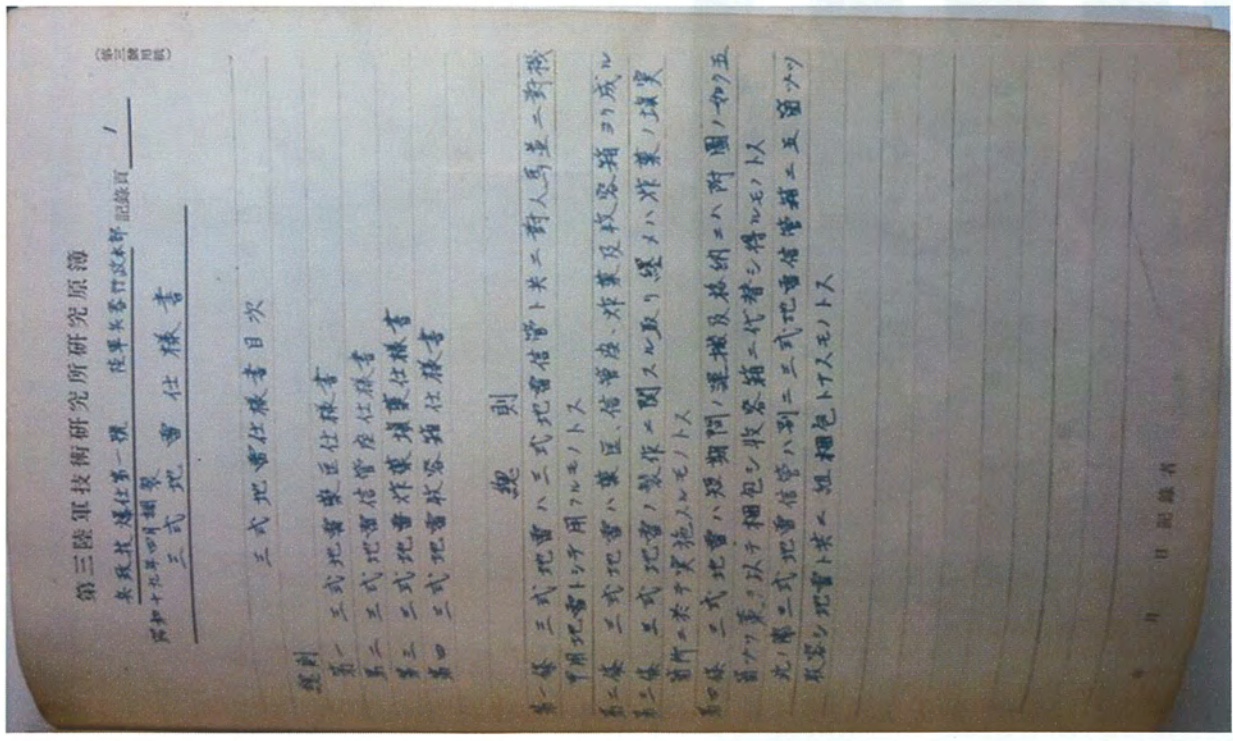 (第三號用紙)
第三陸軍技術研究所研究原簿
兵政技爆仕第一號 陸軍兵器行政本部 記錄頁 1
昭和十九年四月調製
三式地雷仕様書
三式地雷仕様書目次
総則
第一 三式地雷薬匡仕様書
第二 三式地雷信管座仕様書
第三 三式地雷炸薬填薬仕様書
第四 三式地雷收容箱仕様書
総則
第一條 三式地雷ハ三式地雷信管ト共ニ對人馬並ニ對機
甲用地雷トシテ用フルモノトス
第二條 三式地雷ハ薬匡、信管座、炸薬及收容箱ヨリ成ル
第三條 三式地雷ノ製作ニ関スル取リ纒メハ炸薬ノ填実
箇所ニ於テ実施スルモノトス
第四條 三式地雷ハ短期間ノ運搬及格納ニハ附圖ノ如ク五
箇ヅツ菰ヲ以テ梱包シ收容箱ニ代替シ得ルモノトス
此ノ際三式地雷信管ハ別ニ三式地雷信管箱ニ五箇ヅツ
收容シ地雷ト共ニ一組梱包トナスモノトス
年 月 日 記錄者